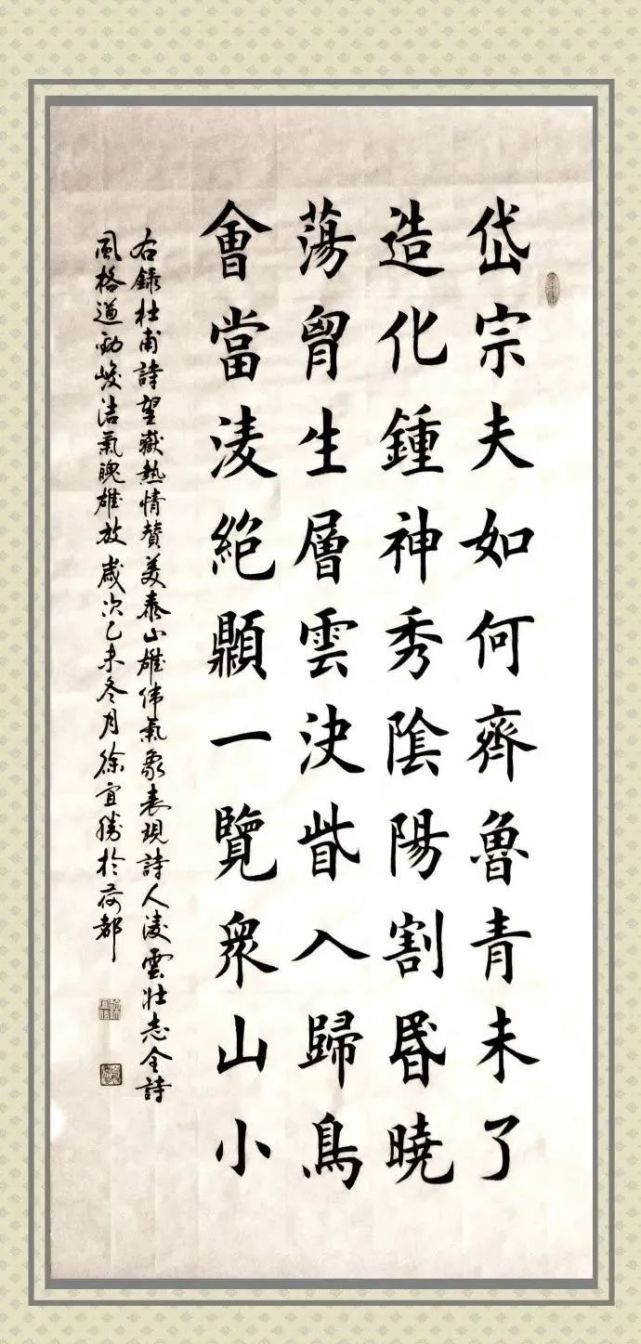 岱宗夫如何齊魯青未了
造化鍾神秀陰陽割昏曉
蕩胷生層雲決眥入歸鳥
會當淩絕顚一覽衆山小
右錄杜甫詩望嶽熱情贊美泰山雄偉氣象表現詩人淩雲壯志全詩
風格遒勁峻洁氣魄雄放歲次乙未冬月徐宜勝於荷都